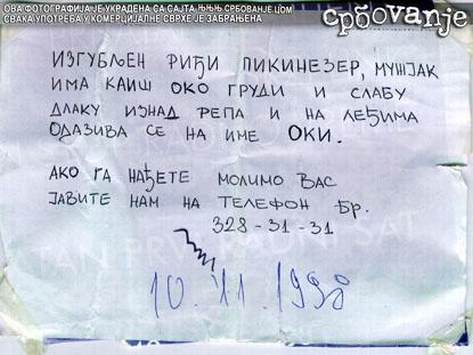 ОВА ФОТОГРАФИЈА ЈЕ УКРАДЕНА СА САЈТА ЊЊЊ СРБОВАЊЕ ЦОМ
СВАКА УПОТРЕБА У КОМЕРЦИЈАЛНЕ СВРХЕ ЈЕ ЗАБРАЊЕНА
србovanje
ИЗГУБЉЕН РИЂИ ПИКИНЕЗЕР, МУЖЈАК
ИМА КАИШ ОКО ГРУДИ И СЛАБУ
ДЛАКУ ИЗНАД РЕПА И НА ЛЕЂИМА
ОДАЗИВА СЕ НА ИМЕ ОКИ.
АКО ГА НАЂЕТЕ МОЛИМО ВАС
ЈАВИТЕ НАМ НА ТЕЛЕФОН БР.
328-31-31
10. 11. 1998